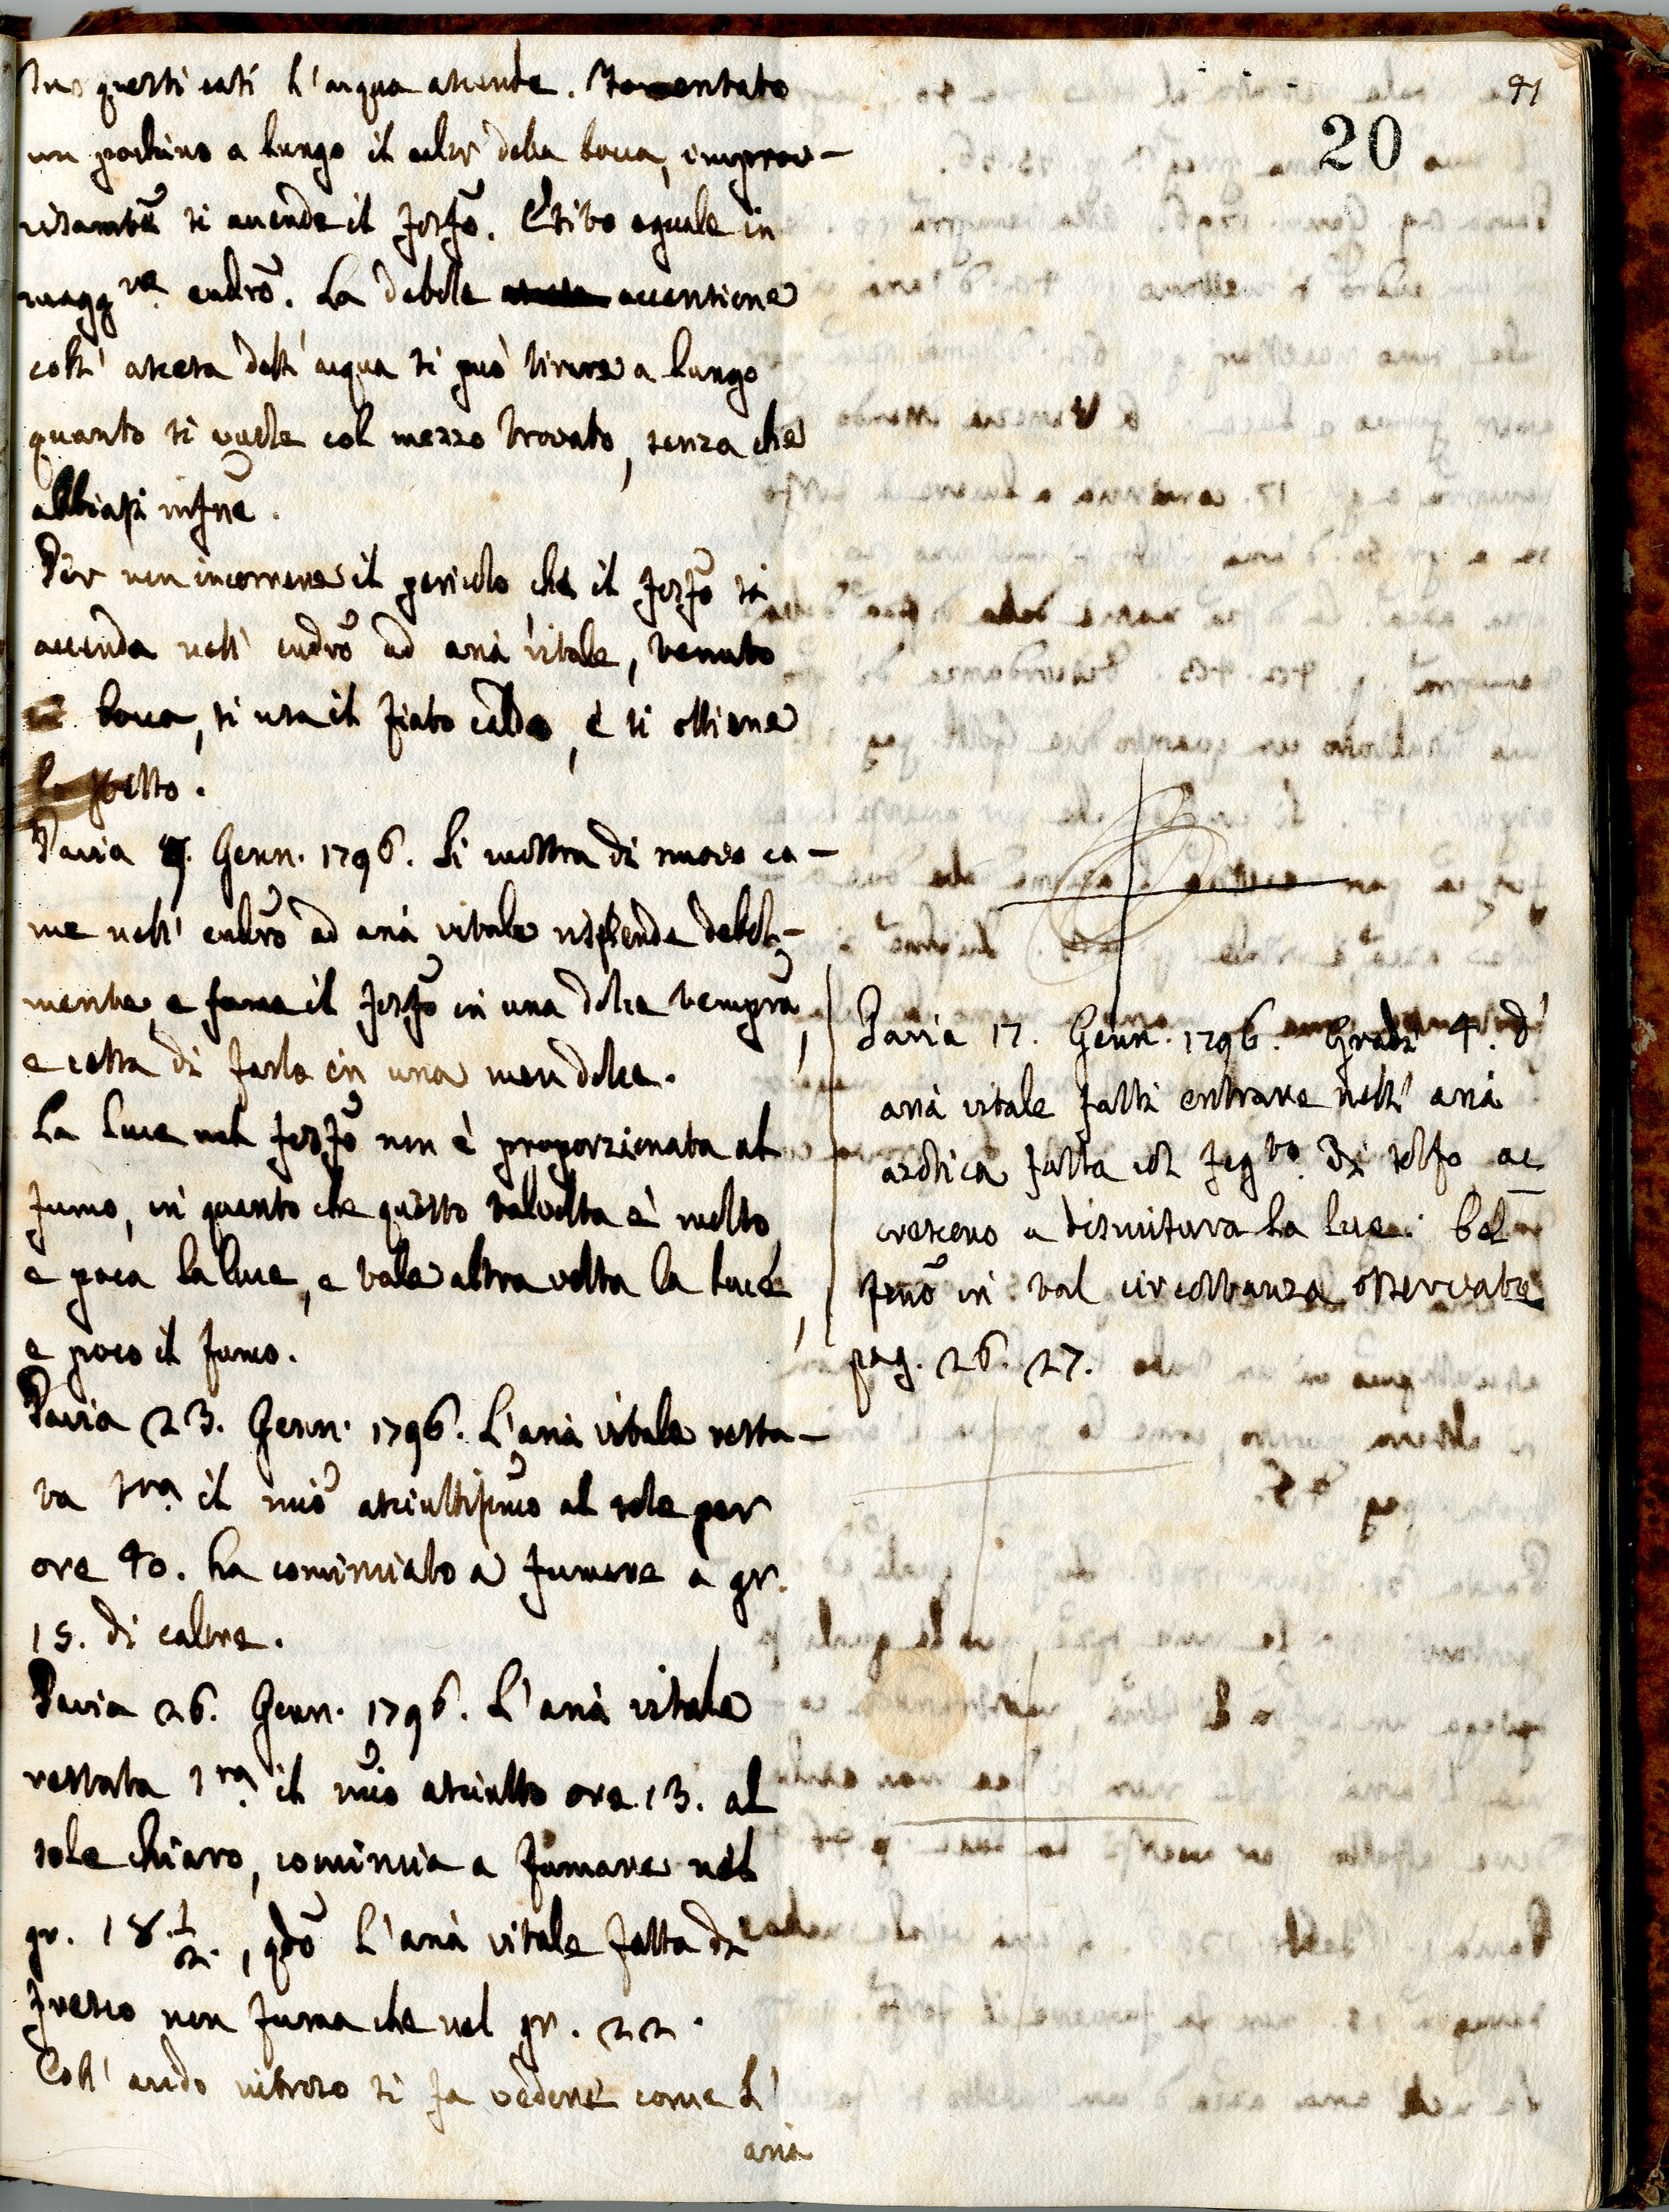 41
20
questi casi l'acqua ascende. Fomentato
un pochino a lungo il calor della bocca, improv-
visamtẽ si accende il fosfõ. Esito eguale in
maggre. eudrõ. La debole accensione
coll' ascesa dell' acqua si può tirare a lungo
quanto si vuole col mezzo trovato, senza che
abbiasi infñe.
Per non incorrere il pericolo che il fosfõ si
accenda nell' eudrõ ad aria vitale, tenuto
in bocca, si usa il fiato caldo, e si ottiene
lo stesso.
Pavia 9. Genn. 1796. Si mostra di nuovo co-
me nell' eudrõ ad aria vitale risplende debol-
mente, e fuma il fosfõ in una dolce temprã,
e cessa di farlo in una men dolce.
La luce nel fosfõ non è proporzionata al
fumo, in quanto che questo talvolta è molto
e poca la luce, e tale altra volta la luce,
e poco il fumo.
Pavia 23. Genn. 1796. L'aria vitale resta-
ta sra. il muriõ asciuttissimo al sole per
ore 40. ha cominciato a fumare a gr.
15. di calore.
Pavia 26. Genn. 1796. L'aria vitale
restata sra. il muriõ asciutto ore 13. al
sole chiaro, comincia a fumare nel
gr. 18.½., qdõ l'aria vitale fatta di
fresco non fuma che nel gr. 22.
Coll' acido nitroso si fa vedere come l'
aria
Pavia 17. Genn. 1796. Gradi 4. d'
aria vitale fatti entrare nell' aria
azotica fatta col fegto. di solfo ac
crescono a dismisura la luce. Bel
fenõ in tal circostanza osservate
pag. 26. 27.